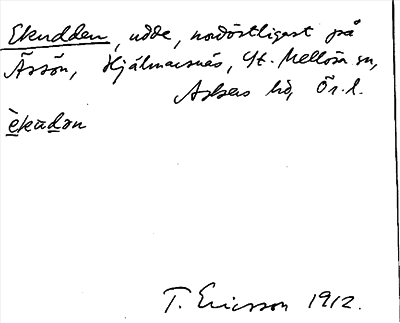 Ekudden, udde, nordöstligast på
Ässön, Hjälmarsnäs, St. Mellösa sn,
Askers hd, Ör. l.
èkudən
T. Ericsson 1912.